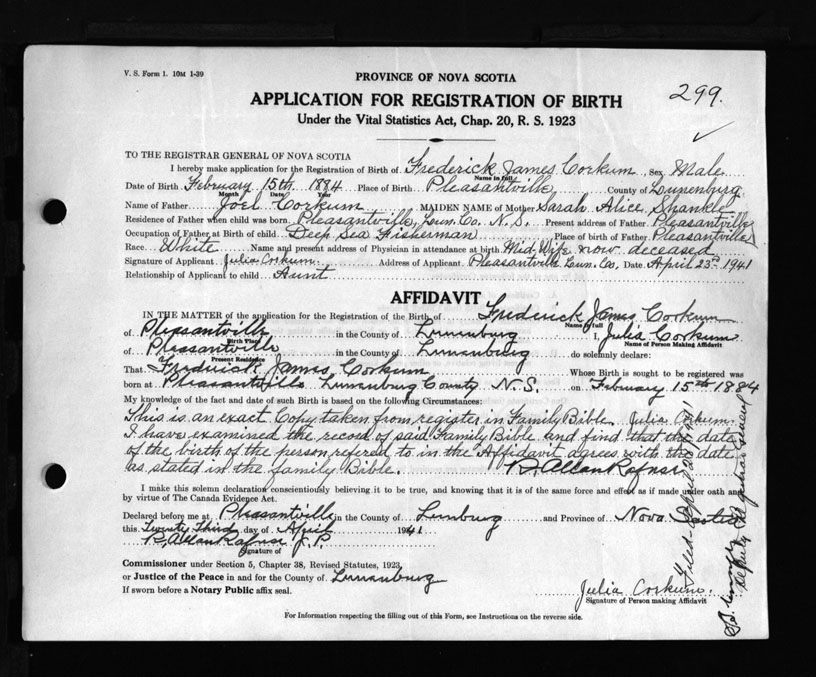 V. S. Form 1. 10M 1-39
PROVINCE OF NOVA SCOTIA
299.
APPLICATION FOR REGISTRATION OF BIRTH
Under the Vital Statistics Act, Chap. 20, R. S. 1923
TO THE REGISTRAR GENERAL OF NOVA SCOTIA
I hereby make application for the Registration of Birth of Frederick James Corkum, Sex Male
Name in full
Date of Birth February 15th 1884 Place of Birth Pleasantville County of Lunenburg
Month Date Year
Name of Father Joel Corkum MAIDEN NAME of Mother Sarah Alice Shankle
Residence of Father when child was born Pleasantville, Lun. Co. N.S. Present address of Father Pleasantville
Occupation of Father at Birth of child Deep Sea Fisherman Place of birth of Father Pleasantville
Race White Name and present address of Physician in attendance at birth Mid Wife now deceased
Signature of Applicant Julia Corkum. Address of Applicant Pleasantville Lun. Co, Date April 23rd 1941
Relationship of Applicant to child Aunt
AFFIDAVIT
IN THE MATTER of the application for the Registration of the Birth of Frederick James Corkum
Name in full
of Pleasantville in the County of Lunenburg I, Julia Corkum
Birth Place Name of Person Making Affidavit
of Pleasantville in the County of Lunenburg do solemnly declare:
Present Residence
That Fredrick James Corkum Whose Birth is sought to be registered was
born at Pleasantville Lunenburg County N.S. on February 15th 1884
My knowledge of the fact and date of such Birth is based on the following Circumstances:
This is an exact Copy taken from register in Family Bible. Julia Corkum.
I have examined the record of said Family Bible and find that the date
of the birth of the person refered to in the Affidavit agrees with the date
as stated in the family Bible. R. Allan Rafuse
I make this solemn declaration conscientiously believing it to be true, and knowing that it is of the same force and effect as if made under oath and
by virtue of The Canada Evidence Act.
Declared before me at Pleasantville in the County of Lunburg and Province of Nova Scotia
this Twenty Third day of April 1941
R. Allan Rafuse J. P.
Signature of
Commissioner under Section 5, Chapter 38, Revised Statutes, 1923,
or Justice of the Peace in and for the County of Lunenburg
If sworn before a Notary Public affix seal.
Julia Corkum.
Signature of Person making Affidavit
For Information respecting the filling out of this Form, see Instructions on the reverse side.
Filed April
Deputy Registrar General